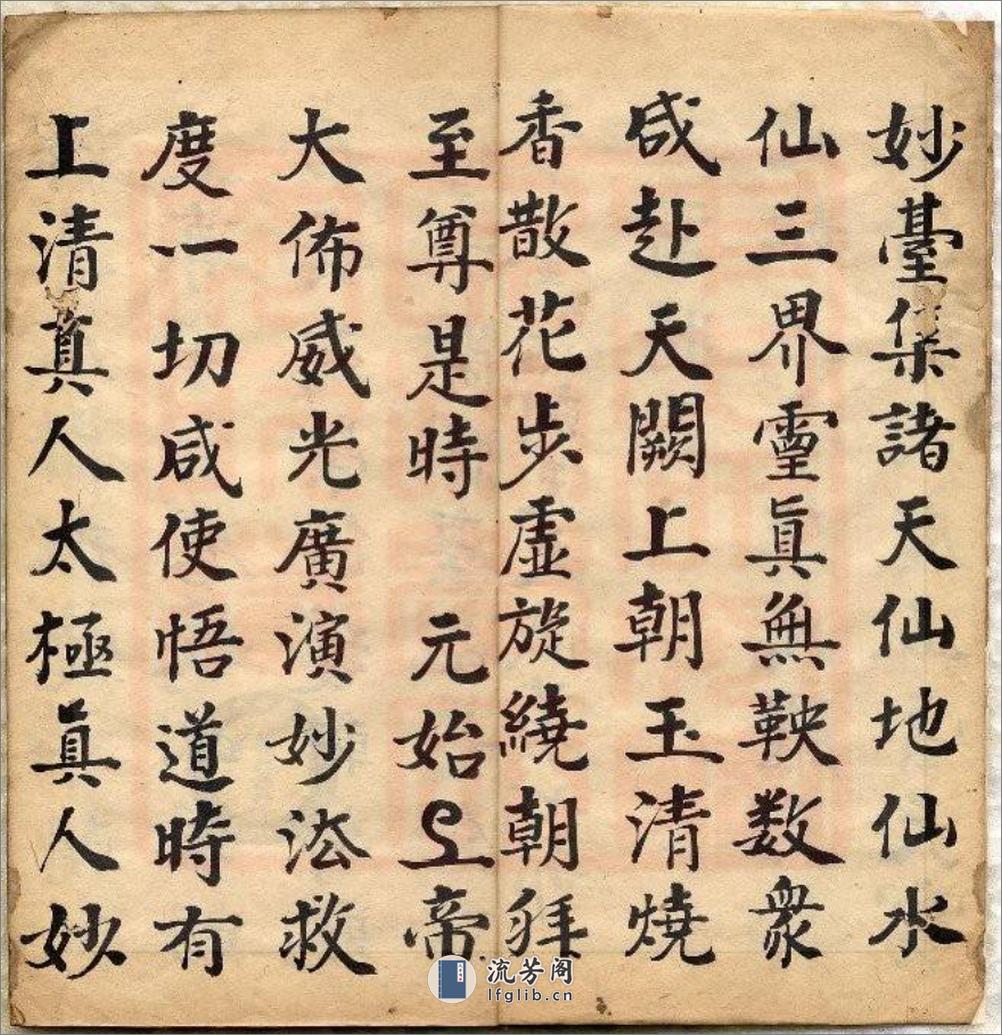 妙臺集諸天仙地仙水
仙三界霊眞無鞅数衆
咸赴天闕上朝玉清燒
香散花步虚旋繞朝拜
至尊是時 元始上帝
大佈威光廣演妙法救
度一切咸使悟道時有
上清真人太極真人妙
流芳阁
lfglib.cn